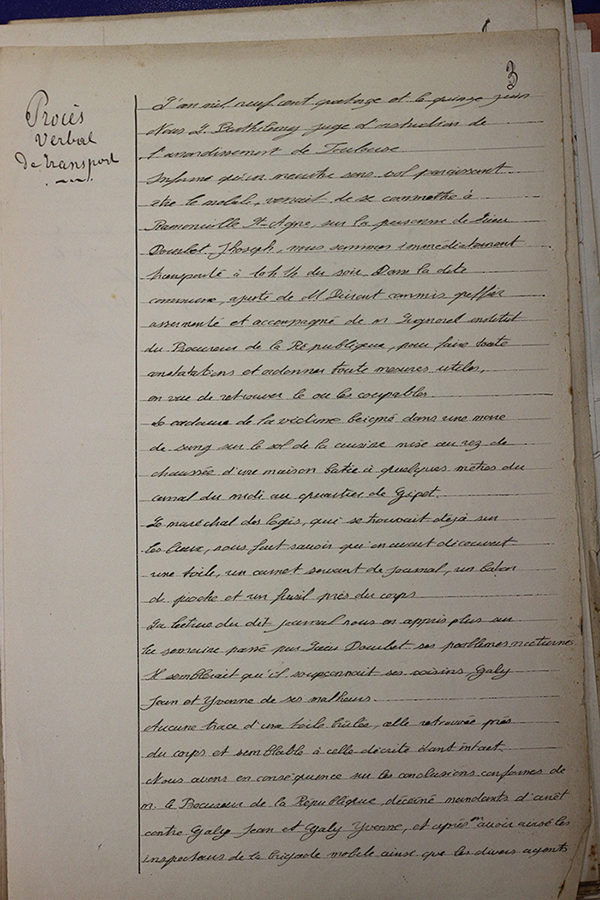 3
Procès
Verbal
De transport
L'an mil neuf cent quatorze et le quinze juin
Nous L. Barthélemy juge d'instruction de
l'arrondissement de Toulouse
Informé qu'un meurtre sans vol paraissant
être le mobile, venait de se commettre à
Ramonville St-Agne, sur la personne de sieur
Doumbot Jhoseph, nous sommes immédiatement
transporté à 16h 1/4 du soir. Dans la dite
commune, assisté de Mr commis greffier
assermenté et accompagné de m substitut
du Procureur de la République, pour faire toute
constatations et ordonner toute mesures utiles,
en vue de retrouver le ou les coupables.
Le cadavre de la victime beigné dans une mare
de sang sur le sol de la cuisine mise au rez de
chaussée d'une maison batie à quelques mètres du
canal du midi au quartier de Gipot.
Le maréchal des logis, qui se trouvait déjà sur
les lieux, nous fait savoir qu'on avait découvert
une toile, un carnet servant de journal, un baton
de pioche et un fusil près du corps
La lecture du dit journal nous en appris plus sur
la semaine passé par sieur Doumbot ses problèmes nocturnes
Il semblerait qu'il soupçonnait ses voisins, Galy
Jean et Yvonne de ses malheurs.
Aucune trace d'une toile brûlée, celle retrouvée près
du corps et semblable à celle décrite étant intact.
Nous avons en conséquence sur les conclusions conformes de
m. le Procureur de la République, décerné mandants d'arrêt
contre Galy Jean et Galy Yvonne, et après en avoir avisé les
inspecteurs de la brigade mobile ainsi que les divers agents